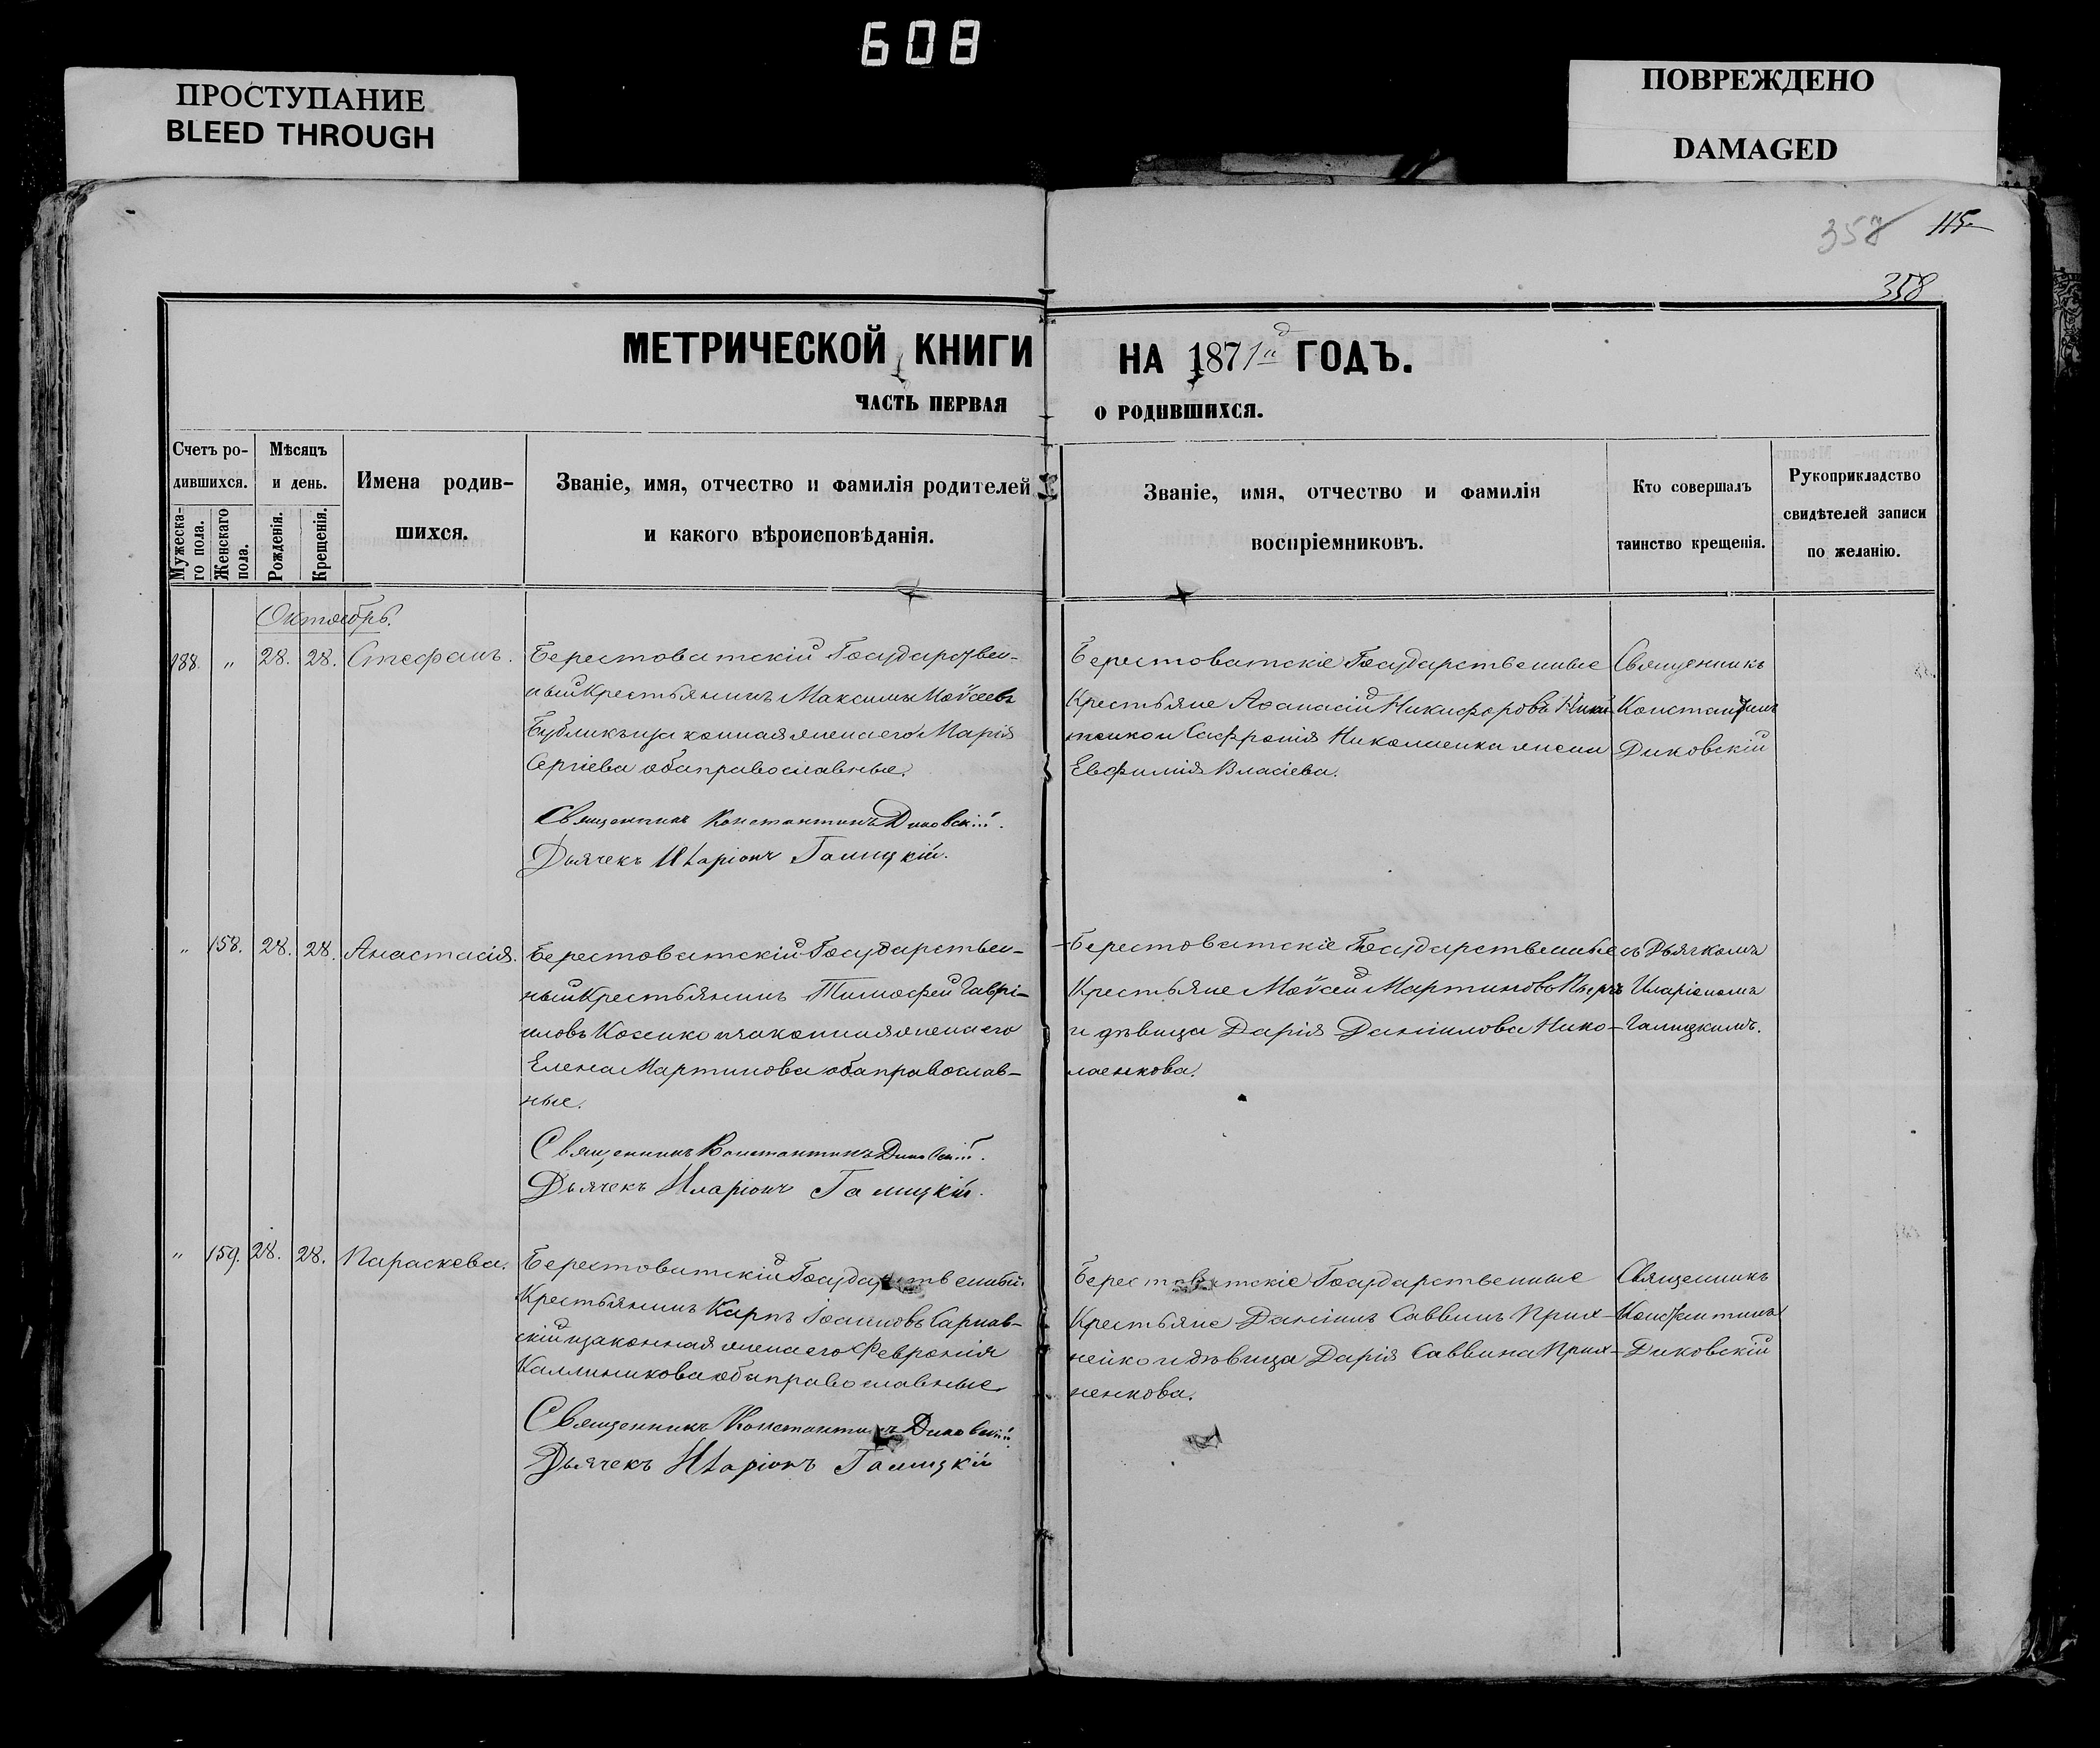 608
ПРОСТУПАНИЕ
BLEED THROUGH
ПОВРЕЖДЕНО
DAMAGED
358 115
358
МЕТРИЧЕСКОЙ КНИГИ НА 1871й ГОДЪ.
ЧАСТЬ ПЕРВАЯ О РОДИВШИХСЯ.
Счетъ ро-
дившихся.
Мужеска-
го пола.
Женскаго
пола.
Мѣсяцъ
и день.
Рожденія.
Крещенія.
Имена родив-
шихся.
Званіе, имя, отчество и фамилія родителей
и какого вѣроисповѣданія.
Званіе, имя, отчество и фамилія
воспріемниковъ.
Кто совершалъ
таинство крещенія.
Рукоприкладство
свидѣтелей записи
по желанію.
Октябрь.
188. " 28. 28. Стефанъ.
Берестоватскій Государствен-
ный Крестьянинъ Максимъ Моѵсеевъ
Бубликъ и законная жена его Марія
Сергіева оба православные.
Священникъ Константинъ Диковскій.
Дьячекъ Иларіонъ Галицкій.
Берестоватскіе Государственные
Крестьяне Аѳанасій Никифоровъ
Софронія Николаенка жена
Евфимія Власіева.
Священникъ
Константинъ
Диковскій
" 158. 28. 28. Анастасія.
Берестоватскій Государствен-
ный Крестьянинъ Тимофей Гаврі-
иловъ и законная жена его
Елена Мартинова оба православ-
ные.
Священникъ Константинъ Диковскій.
Дьячекъ Иларіонъ Галицкій.
Берестоватскіе Государственные
Крестьяне Моѵсей Мартиновъ
и дѣвица Дарія Даніилова Нико-
лаенкова.
съ Дьячкомъ
Иларіономъ
Галицкимъ.
" 159. 28. 28. Параскева.
Берестоватскій Государственный
Крестьянинъ Карпъ Іоанновъ Гарнав-
скій и законная жена его Февронія
Каллиникова оба православные
Священникъ Константинъ Диковскій
Дьячекъ Иларіонъ Галицкій
Берестоватскіе Государственные
Крестьяне Даніилъ Саввинъ Прих-
ненко и дѣвица Дарія Саввина Прих-
ненкова.
Священникъ
Константинъ
Диковскій